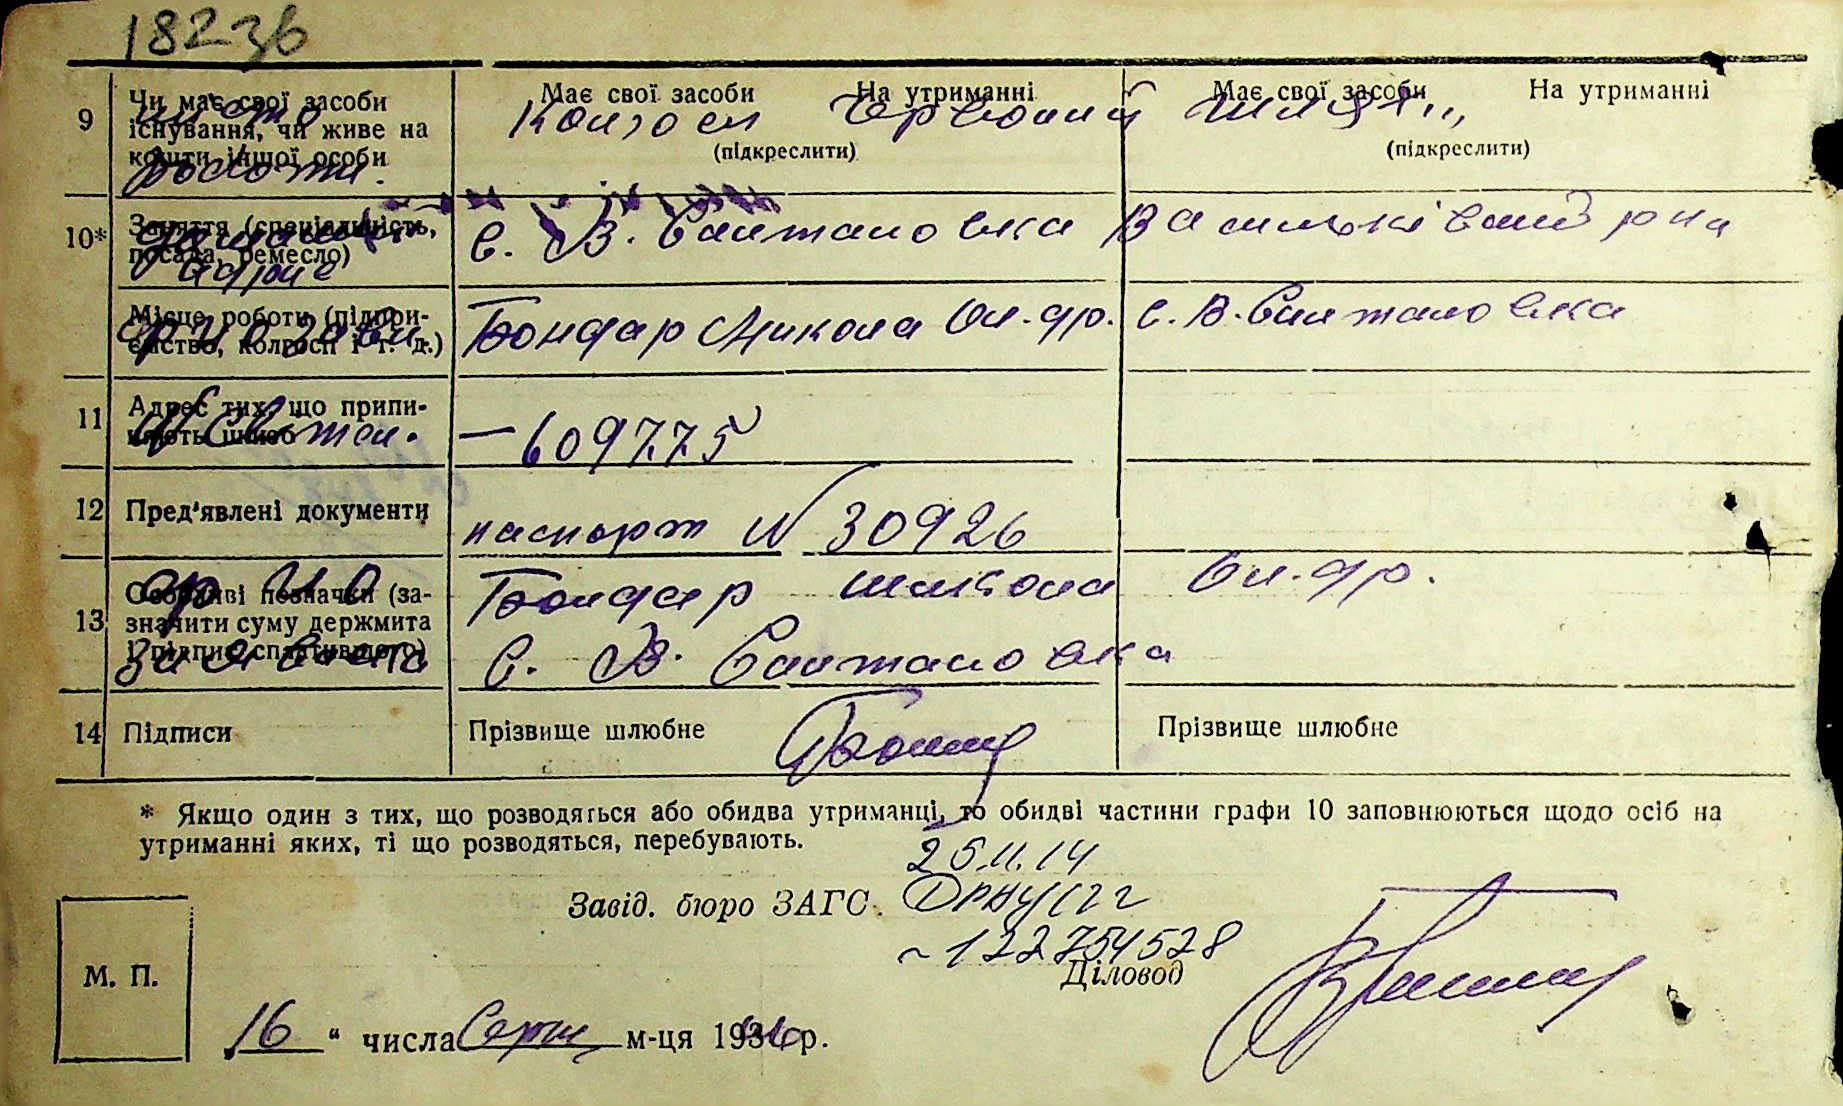 18236
9 Чи має свої засоби існування, чи живе на кошти іншої особи
місто роботи.
Має свої засоби На утриманні
(підкреслити)
Має свої засоби На утриманні
(підкреслити)
Колгосп Червоний шлях"
10* Заняття (спеціальність, посада, ремесло)
домашній адрес
с. В. Солтановка Васильківський р на
Місце роботи (підприємство, колгосп і т. д.)
Бондар Микола Ол-др. с. В. Солтановка
11 Адрес тих, що припиняють шлюб
№ Свтел.
— 609775
12 Пред'явлені документи
паспорт № 30926
13 Особливі позначки (зазначити суму держмита і підпис сплатившого)
заявника
Бондар Микола Ол-др.
с. В. Солтановка
14 Підписи
Прізвище шлюбне
Прізвище шлюбне
* Якщо один з тих, що розводяться або обидва утриманці, то обидві частини графи 10 заповнюються щодо осіб на
утриманні яких, ті що розводяться, перебувають.
25.11.14
Завід. бюро ЗАГС.
122754528
Діловод
М. П.
16 " числа Серпн м-ця 1946 р.